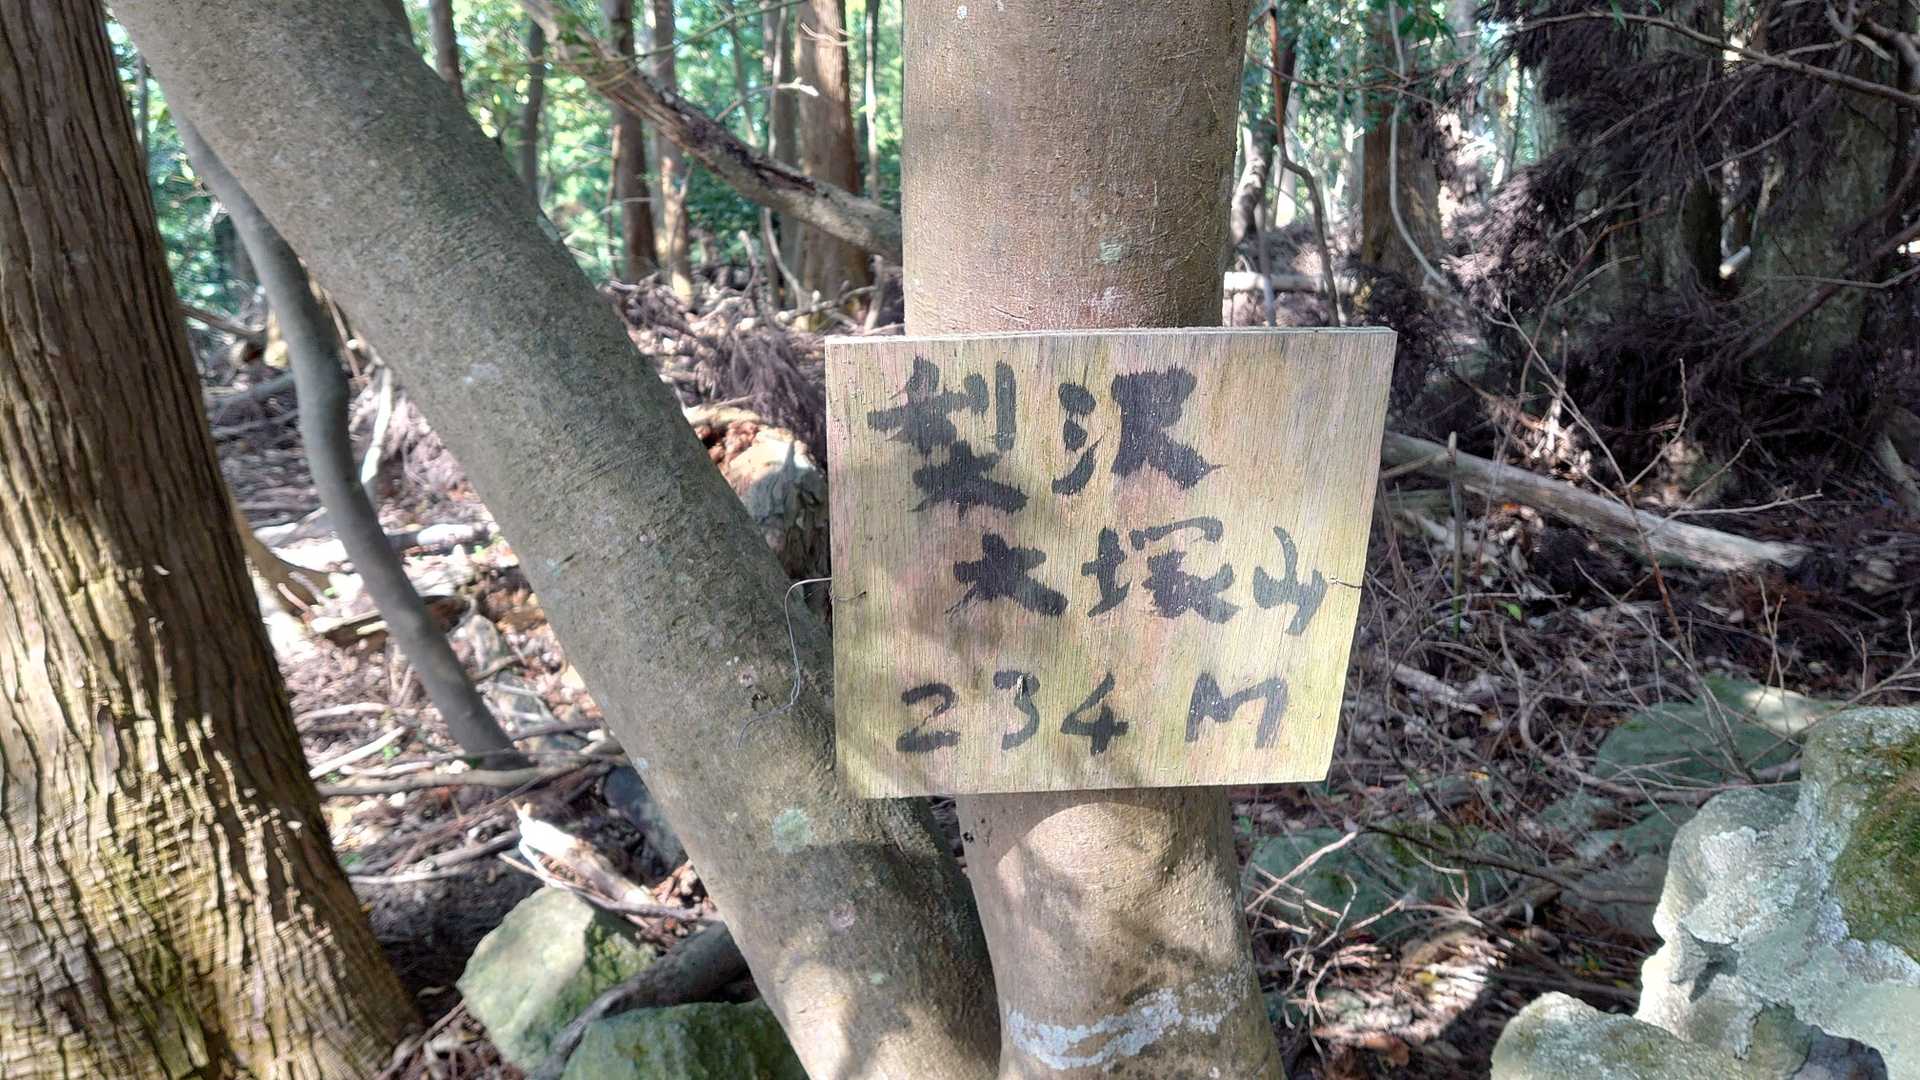 梨沢
大塚山
234M